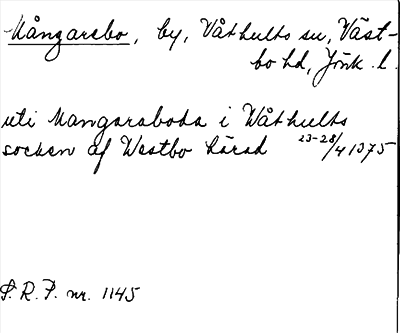 Mångarebo, by, Våthults sn, Väst-
bo hd, Jönk. l.
uti Mangaraboda i Wåthults
socken af Westbo härad 23-28/4 1375
S. R. P. nr. 1145